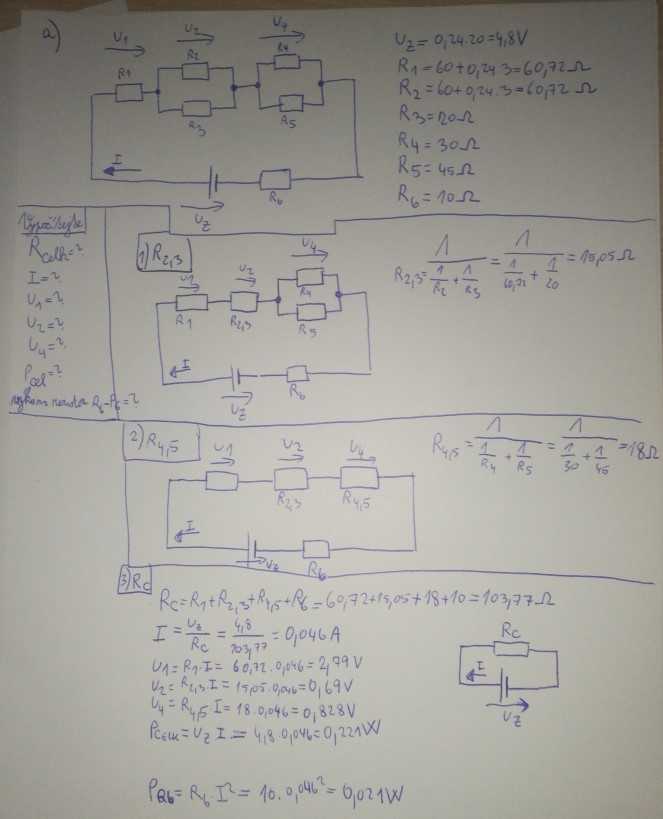 a)
U1 U2 U4
R1 R2 R4
R3 R5
I
Uz R6
Uz = 0,24.20 = 4,8V
R1 = 60+0,24.3 = 60,72Ω
R2 = 60+0,24.3 = 60,72 Ω
R3 = 20Ω
R4 = 30Ω
R5 = 45Ω
R6 = 10Ω
Vypočítejte
Rcelk = ?
I = ?
U1 = ?
U2 = ?
U4 = ?
Pcel = ?
R6-P6 = ?
1) R2,3
U1 U2 U4
R1 R2,3 R4
R5
I
Uz R6
R2,3 = 1/(1/R2 + 1/R3) = 1/(1/60,72 + 1/20) = 15,05Ω
2) R4,5
U1 U2 U4
R2,3 R4,5
I
Uz R6
R4,5 = 1/(1/R4 + 1/R5) = 1/(1/30 + 1/45) = 18Ω
3) Rc
Rc = R1+R2,3+R4,5+R6 = 60,72+15,05+18+10 = 103,77Ω
I = Uz/Rc = 4,8/103,77 = 0,046A
U1 = R1.I = 60,72.0,046 = 2,79V
U2 = R2,3.I = 15,05.0,046 = 0,69V
U4 = R4,5.I = 18.0,046 = 0,828V
Pcelk = Uz.I = 4,8.0,046 = 0,221W
PR6 = R6.I² = 10.0,046² = 0,021W
Rc
I
Uz